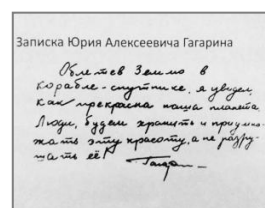 Записка Юрия Алексеевича Гагарина
Облетев Землю в
корабле-спутнике, я увидел,
как прекрасна наша планета.
Люди, будем хранить и приумно-
жать эту красоту, а не разру-
шать её!
Гагарин